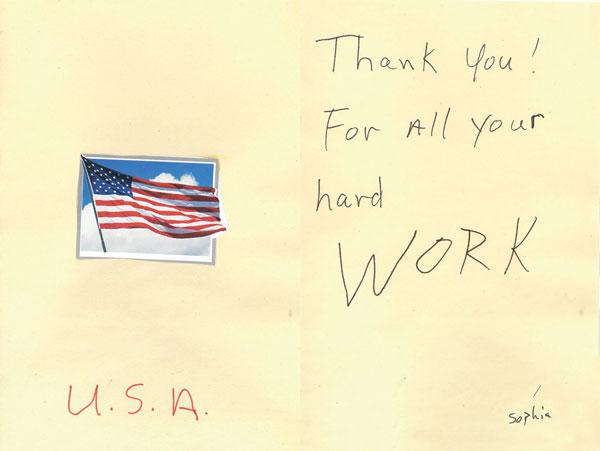 U.S.A.
Thank you!
For All your
hard
WORK
Sophia